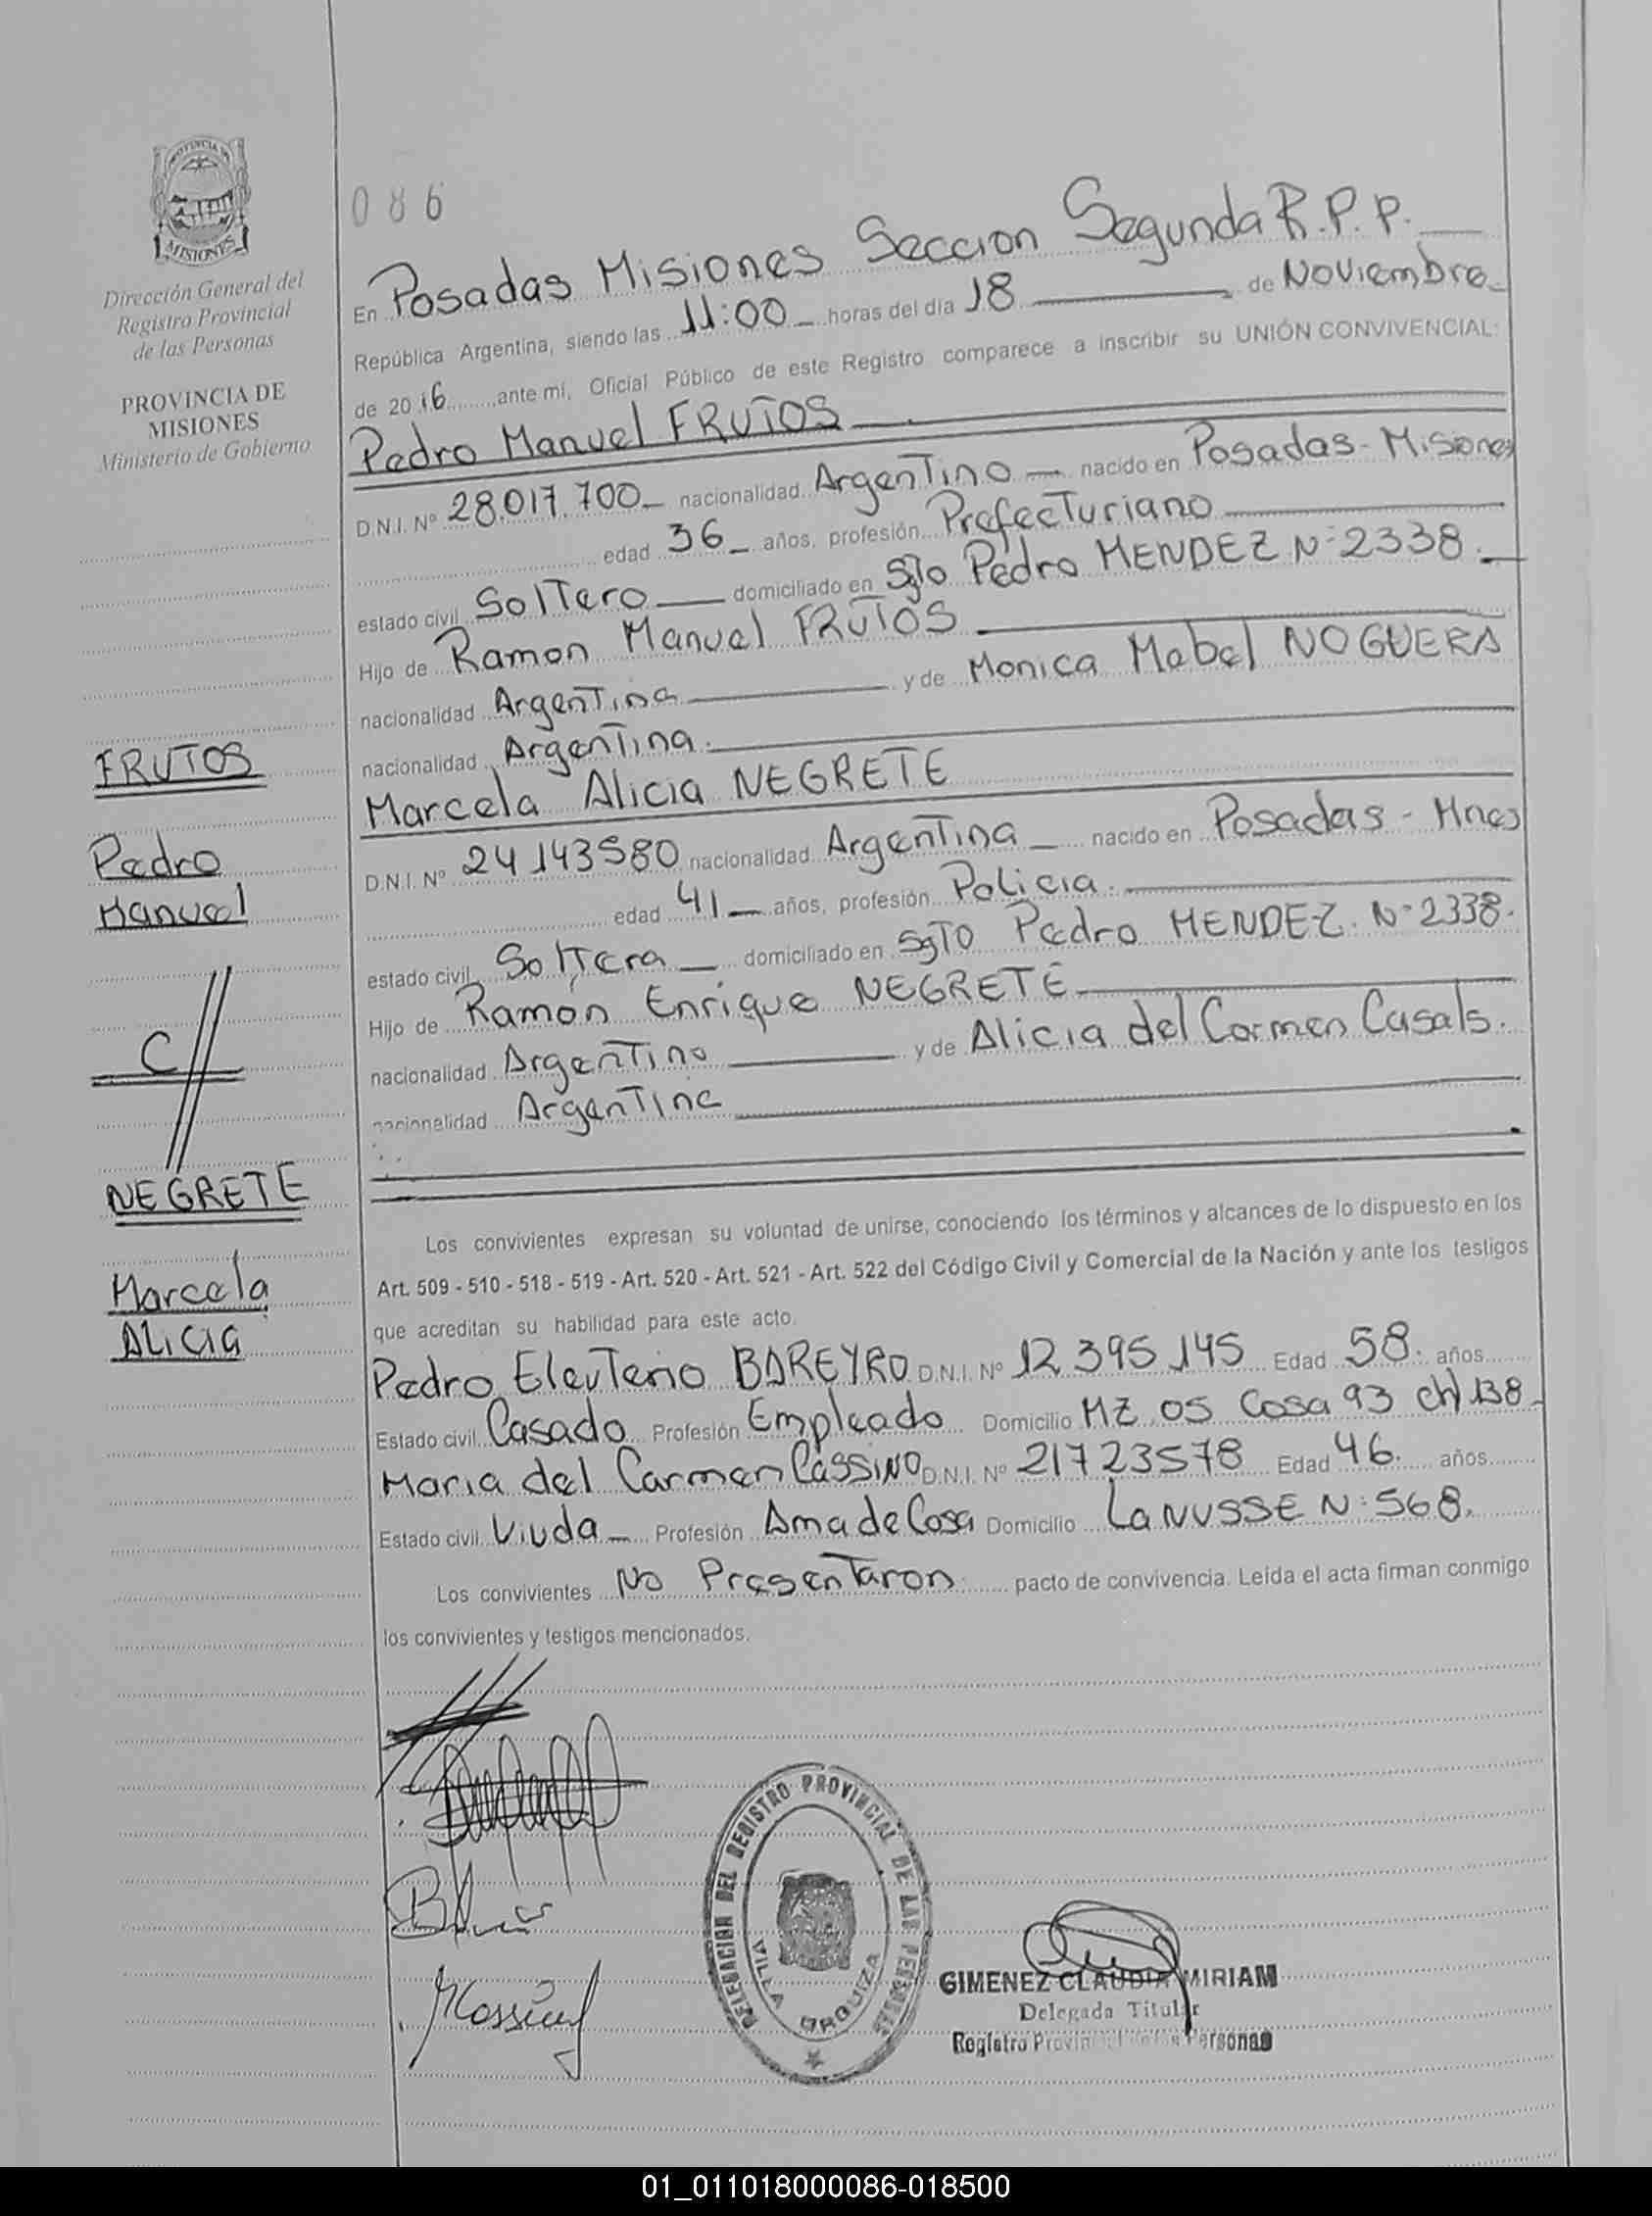 PROVINCIA DE
MISIONES
Dirección General del
Registro Provincial
de las Personas
PROVINCIA DE
MISIONES
Ministerio de Gobierno
FRUTOS
Pedro
Manuel
C//
NEGRETE
Marcela
Alicia
086
En Posadas Misiones Seccion Segunda R.P.P.
República Argentina, siendo las 11:00 horas del día 18 de Noviembre
de 2016 ante mí, Oficial Público de este Registro comparece a inscribir su UNIÓN CONVIVENCIAL:
Pedro Manuel FRUTOS
D.N.I. Nº 28.017.700 nacionalidad Argentino nacido en Posadas - Misiones
edad 36 años, profesión Prefecturiano
estado civil Soltero domiciliado en Sgto Pedro MENDEZ Nº 2338.
Hijo de Ramon Manuel FRUTOS
nacionalidad Argentina y de Monica Mabel NOGUERA
nacionalidad Argentina.
Marcela Alicia NEGRETE
D.N.I. Nº 24143580 nacionalidad Argentina nacido en Posadas - Mnes
edad 41 años, profesión Policia.
estado civil Soltera domiciliado en Sgto Pedro MENDEZ. Nº 2338.
Hijo de Ramón Enrique NEGRETE
nacionalidad Argentino y de Alicia del Carmen Casals.
nacionalidad Argentina
Los convivientes expresan su voluntad de unirse, conociendo los términos y alcances de lo dispuesto en los
Art. 509 - 510 - 518 - 519 - Art. 520 - Art. 521 - Art. 522 del Código Civil y Comercial de la Nación y ante los testigos
que acreditan su habilidad para este acto.
Pedro Eleuterio BAREYRO D.N.I. Nº 12395145 Edad 58. años
Estado civil Casado Profesión Empleado Domicilio MZ 05 Casa 93 ch 138
Maria del Carmen CASSINO D.N.I. Nº 21723578 Edad 46. años
Estado civil Viuda Profesión Ama de Casa Domicilio LANUSSE Nº 568.
Los convivientes No Presentaron pacto de convivencia. Leída el acta firman conmigo
los convivientes y testigos mencionados.
DELEGACION DEL REGISTRO PROVINCIAL DE LAS PERSONAS
VILLA URQUIZA
GIMENEZ CLAUDIA MIRIAM
Delegada Titular
Registro Provincial de las Personas
01_011018000086-018500